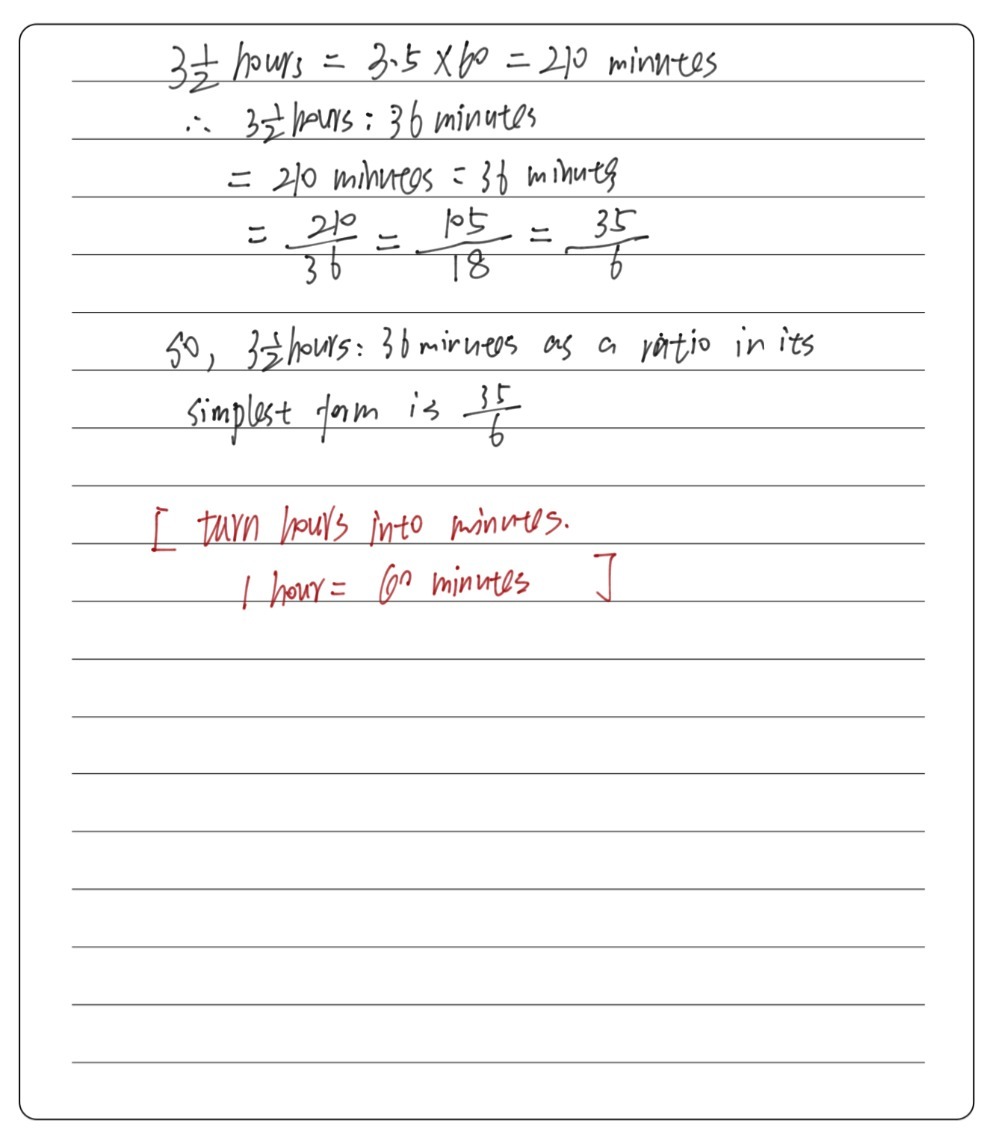 3½ hours = 3.5 × 60 = 210 minutes
∴ 3½ hours : 36 minutes
= 210 minutes = 36 minutes
= 210/36 = 105/18 = 35/6
So, 3½ hours : 36 minutes as a ratio in its
simplest form is 35/6
[ turn hours into minutes.
1 hour = 60 minutes ]